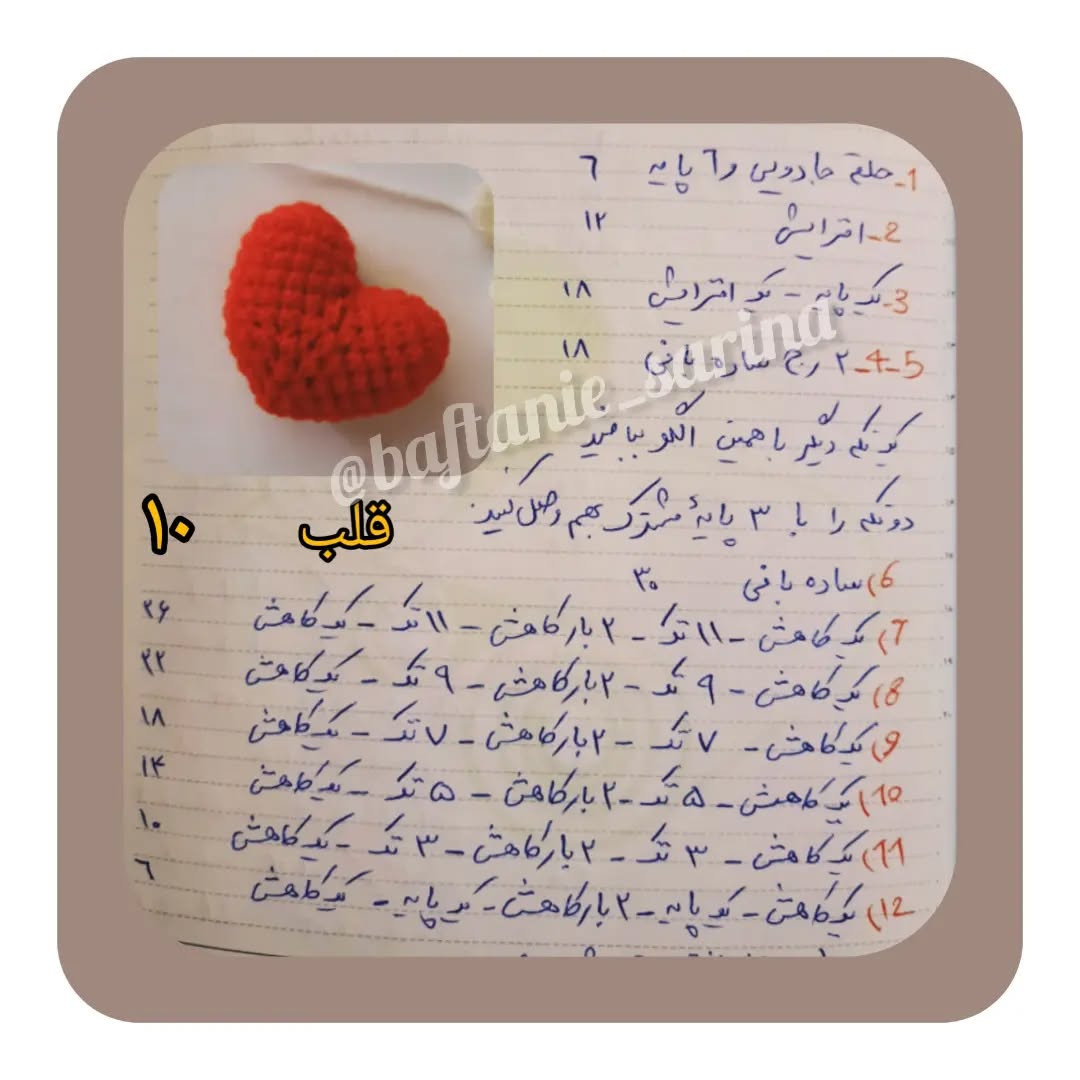 1- حلقه جادویی و ٦ پایه ٦
2- افزایش ۱۲
3- یک پایه - یک افزایش ۱۸
4-5- ۲ رج ساده بافی ۱۸
یک تکه دیگر با همین الگو ببافید
دو تکه را با ۳ پایهٔ مشترک بهم وصل کنید
6) ساده بافی ۳۰
7) یک کاهش - ۱۱ تک - ۲ بار کاهش - ۱۱ تک - یک کاهش ۲۶
8) یک کاهش - ۹ تک - ۲ بار کاهش - ۹ تک - یک کاهش ۲۲
9) یک کاهش - ۷ تک - ۲ بار کاهش - ۷ تک - یک کاهش ۱۸
10) یک کاهش - ۵ تک - ۲ بار کاهش - ۵ تک - یک کاهش ۱۴
11) یک کاهش - ۳ تک - ۲ بار کاهش - ۳ تک - یک کاهش ۱۰
12) یک کاهش - یک پایه - ۲ بار کاهش - یک پایه - یک کاهش ٦
قلب ۱۰
@baftanie_sarina